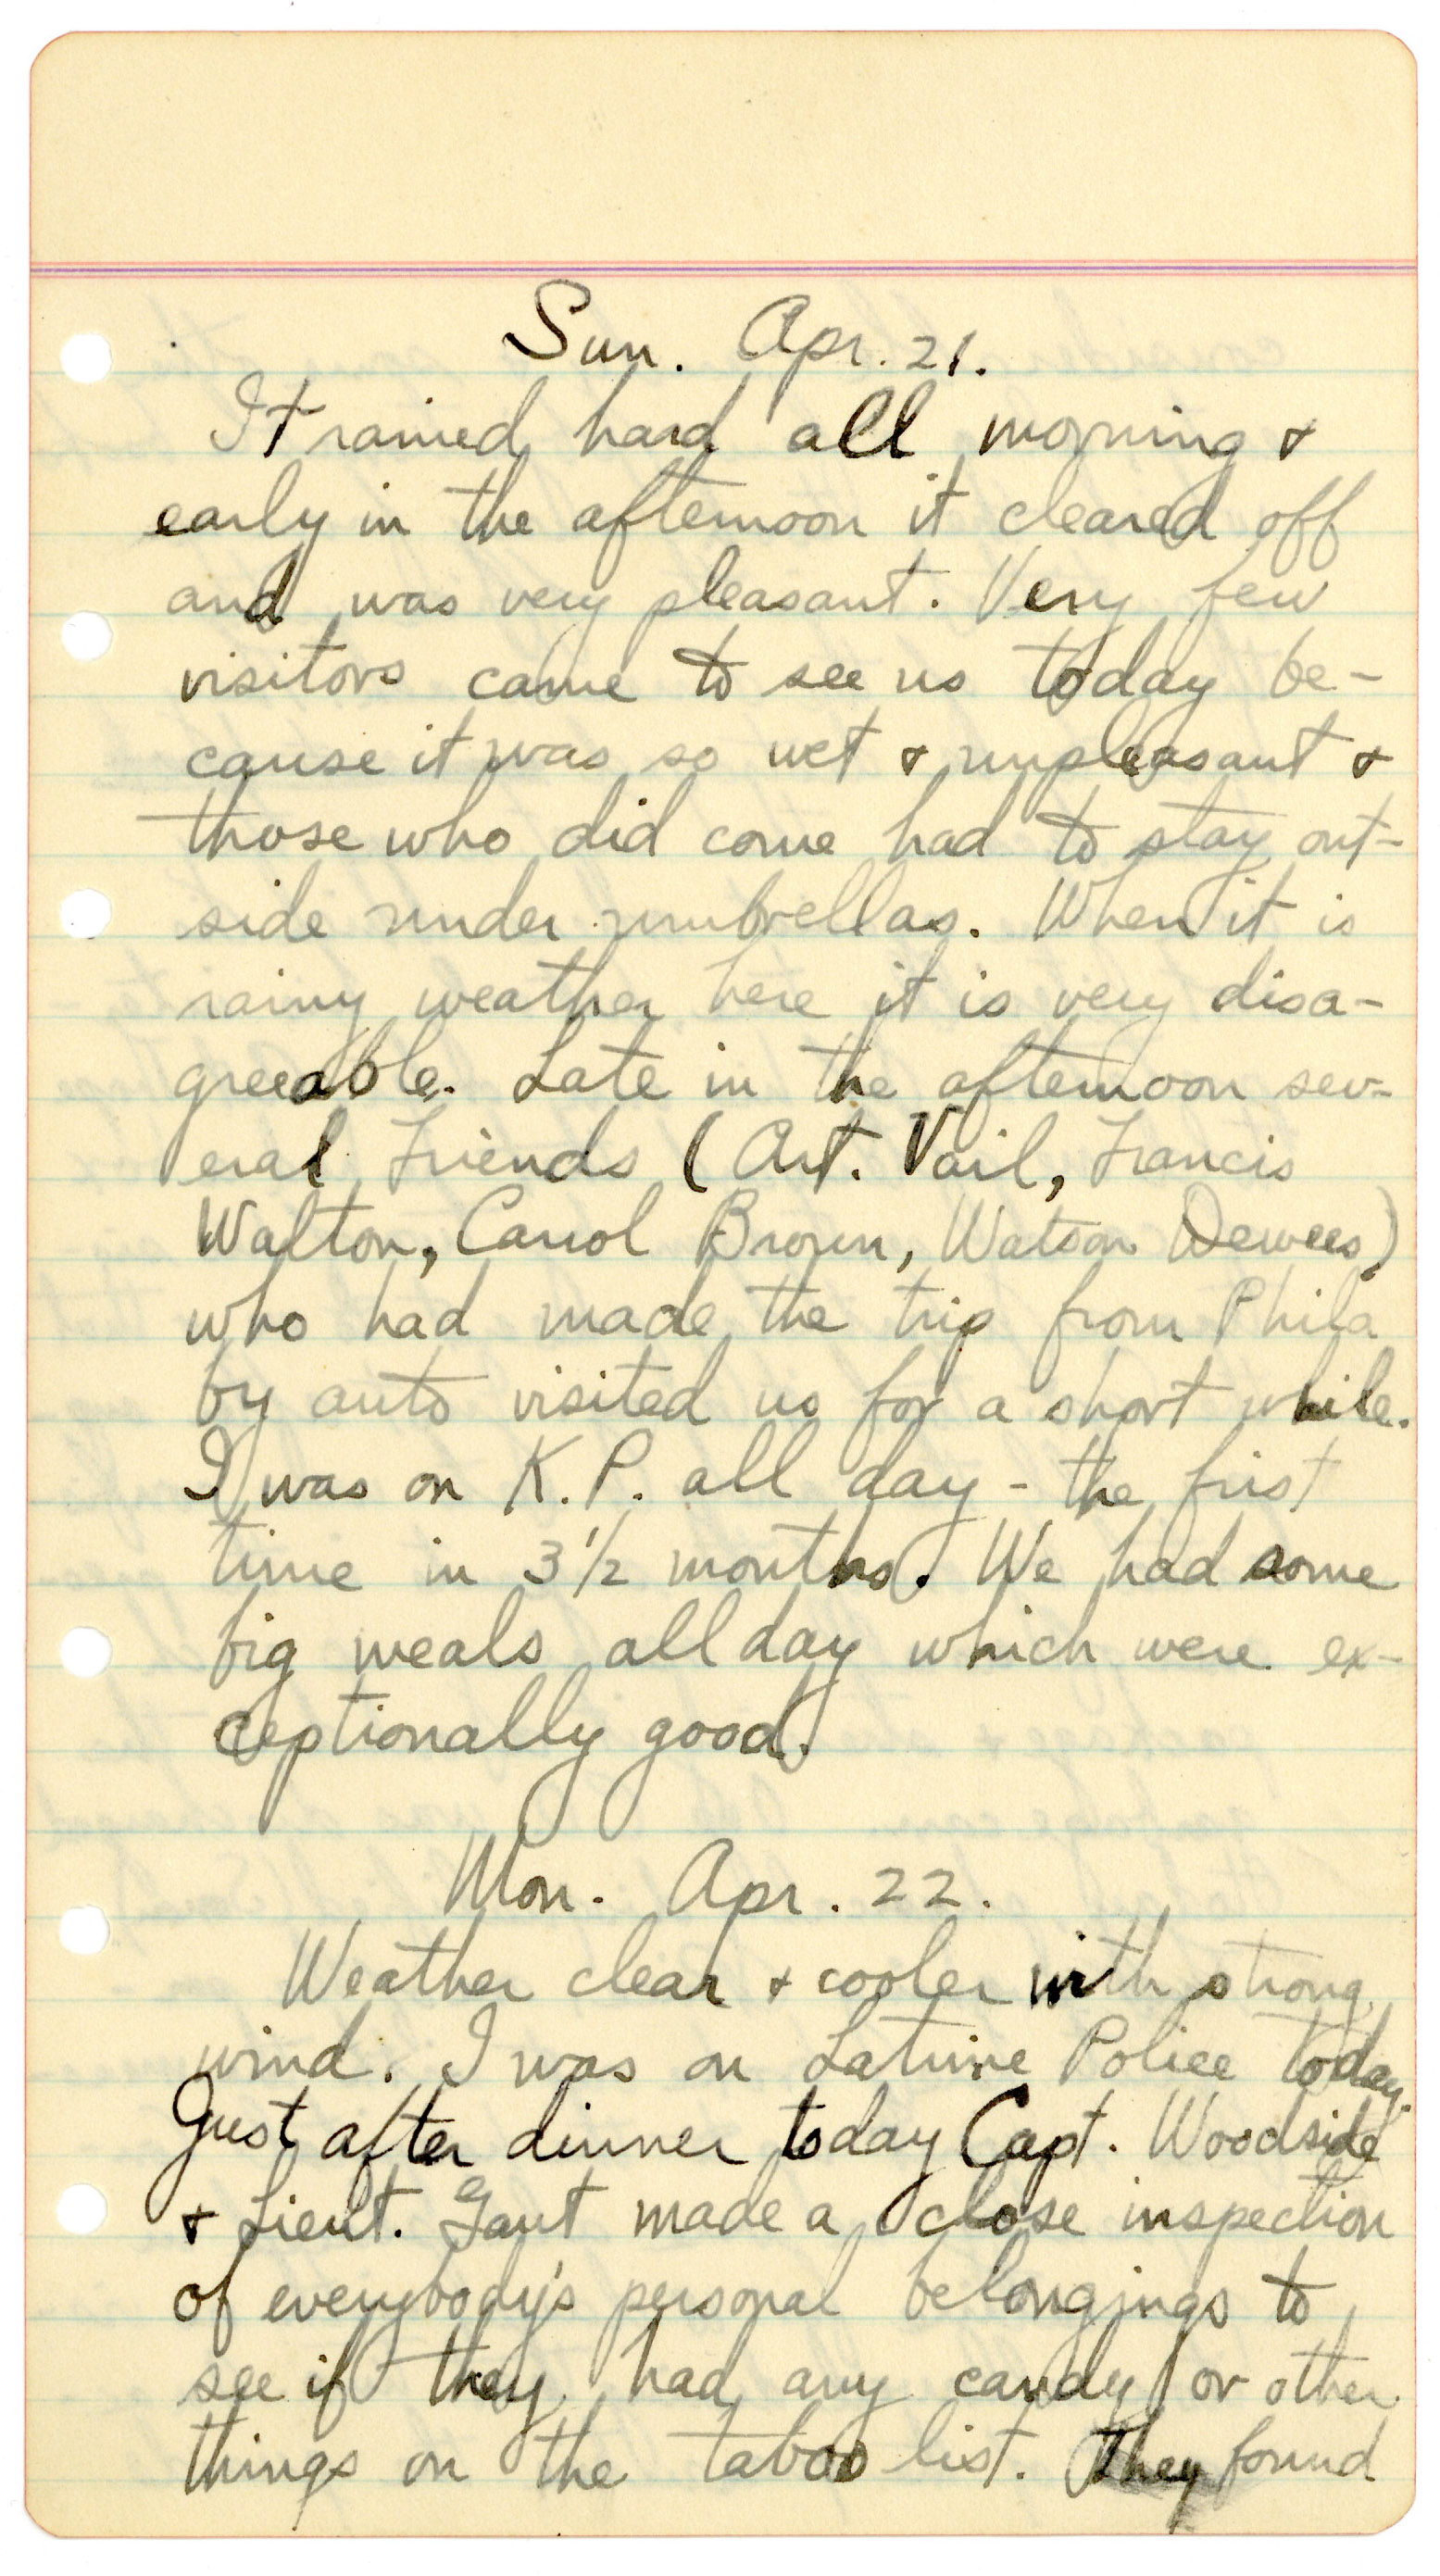 Sun. Apr. 21.
It rained hard all morning &
early in the afternoon it cleared off
and was very pleasant. Very few
visitors came to see us today be-
cause it was so wet & unpleasant &
those who did come had to stay out-
side under umbrellas. When it is
rainy weather here it is very disa-
greeable. Late in the afternoon sev-
eral Friends (Art. Vail, Francis
Walton, Carrol Brown, Watson Dewees)
who had made the trip from Phila
by auto visited us for a short while.
I was on K.P. all day - the first
time in 3 1/2 months. We had some
big meals all day which were ex-
ceptionally good.
Mon. Apr. 22.
Weather clear & cooler with strong
wind. I was on Latrine Police today.
Just after dinner today Capt. Woodside
& Lieut. Gant made a close inspection
of everybody's personal belongings to
see if they had any candy or other
things on the taboo list. They found